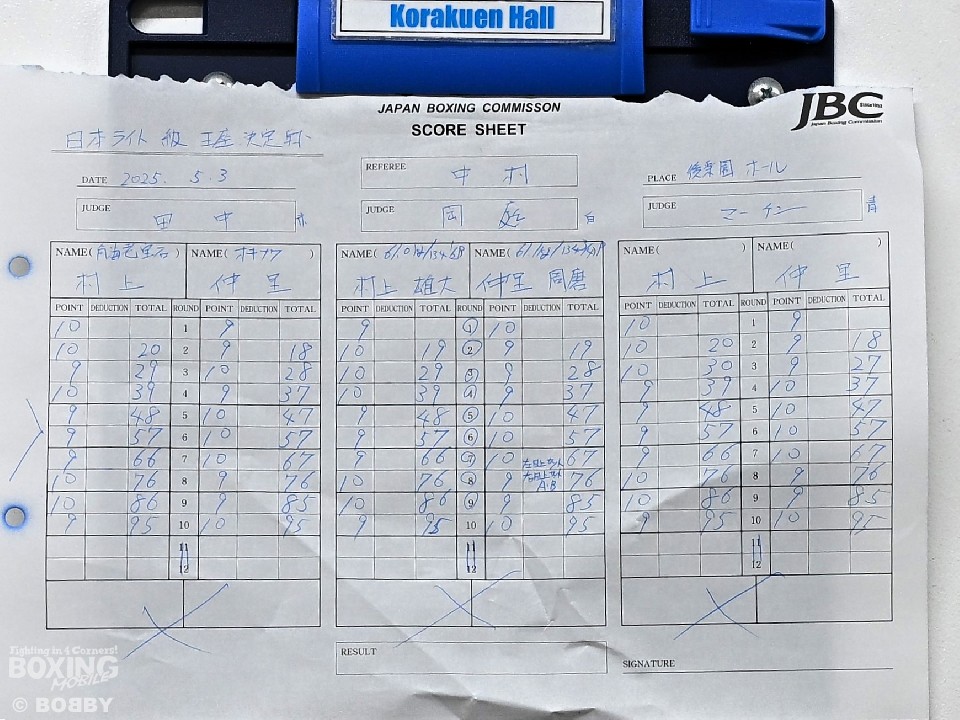 Korakuen Hall
JAPAN BOXING COMMISSON
SCORE SHEET
JBC
Japan Boxing Commission
日本ライト級 王座決定戦
DATE 2025. 5.3
REFEREE 中村
PLACE 後楽園ホール
JUDGE 田中 赤
JUDGE 岡庭 白
JUDGE マーチン 青
NAME( ) NAME(オキナワ) NAME( ) NAME( ) NAME( ) NAME( )
村上 仲里 村上 雄大 仲里 周磨 村上 仲里
POINT DEDUCTION TOTAL ROUND POINT DEDUCTION TOTAL POINT DEDUCTION TOTAL ROUND POINT DEDUCTION TOTAL POINT DEDUCTION TOTAL ROUND POINT DEDUCTION TOTAL
10 1 9 9 1 10 10 1 9
10 20 2 9 18 10 19 2 9 19 10 20 2 9 18
9 29 3 10 28 10 29 3 9 28 10 30 3 9 27
10 39 4 9 37 10 39 4 9 37 9 39 4 10 37
9 48 5 10 47 9 48 5 10 47 9 48 5 10 47
9 57 6 10 57 9 57 6 10 57 9 57 6 10 57
9 66 7 10 67 9 66 7 10 67 9 66 7 10 67
10 76 8 9 76 10 76 8 9 76 10 76 8 9 76
10 86 9 9 85 10 86 9 9 85 10 86 9 9 85
9 95 10 10 95 9 95 10 10 95 9 95 10 10 95
11 11 11
12 12 12
RESULT
SIGNATURE
Fighting in 4 Corners!
BOXING
MOBILE
© BOBBY